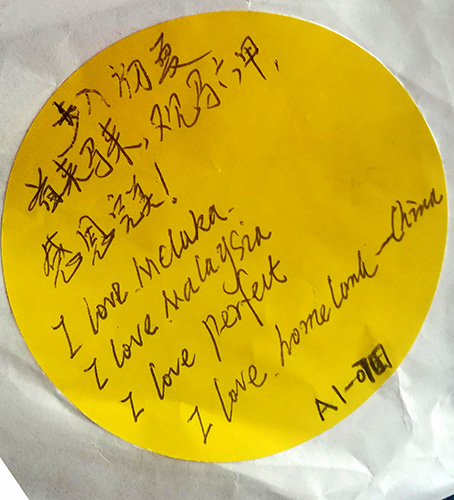 步入初夏
首来马来，观马六甲，
感恩完美！
I love Meluka.
I love Malaysia
I love perfect
I love homeland—China